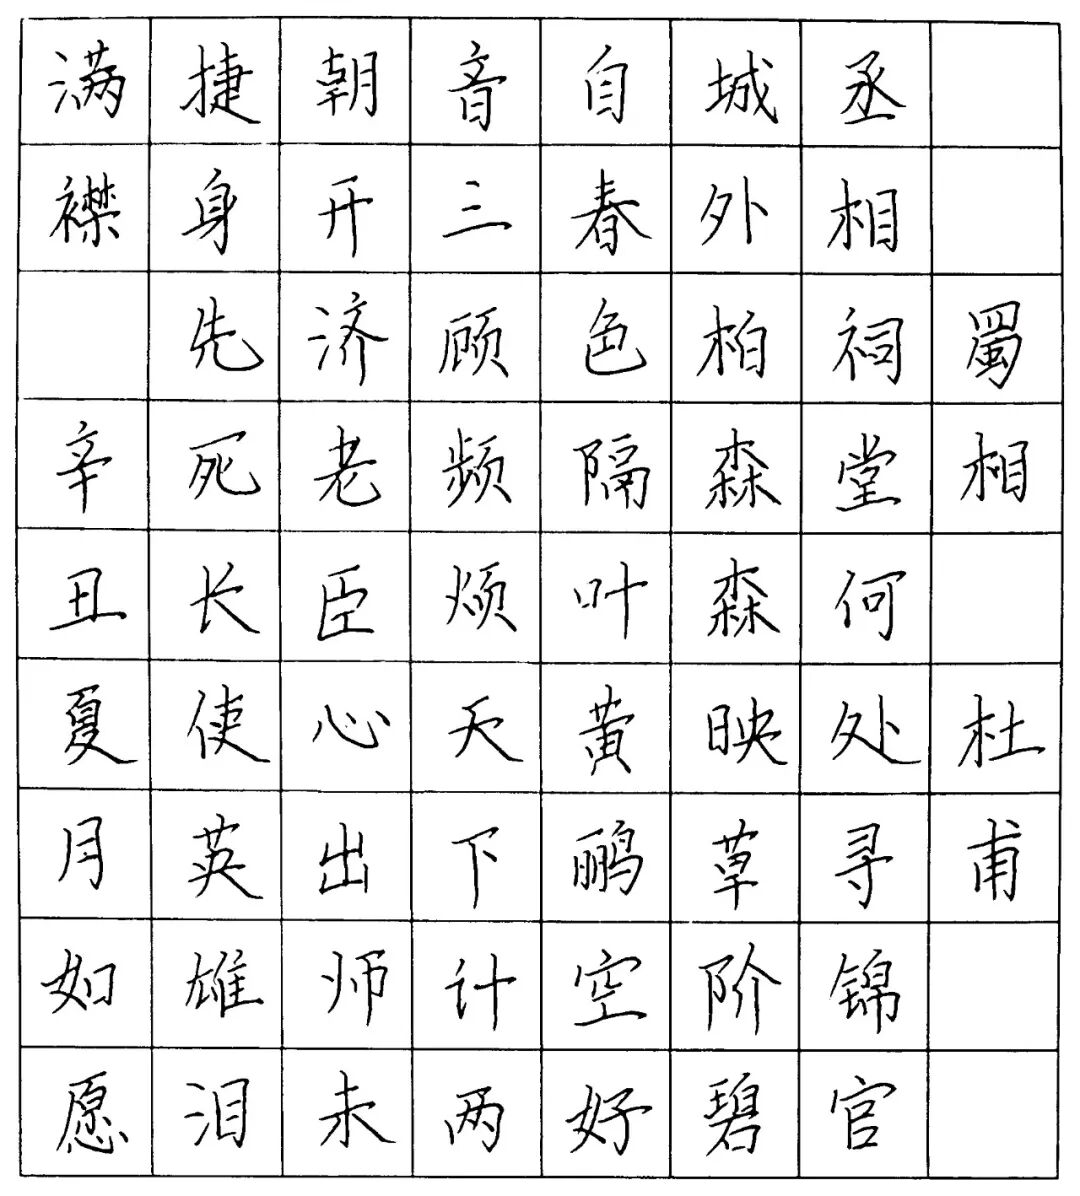 蜀相 杜甫
丞相祠堂何处寻锦官
城外柏森森映草阶碧
自春色隔叶黄鹂空好
音三顾频烦天下计两
朝开济老臣心出师未
捷身先死长使英雄泪
满襟 辛丑夏月如愿